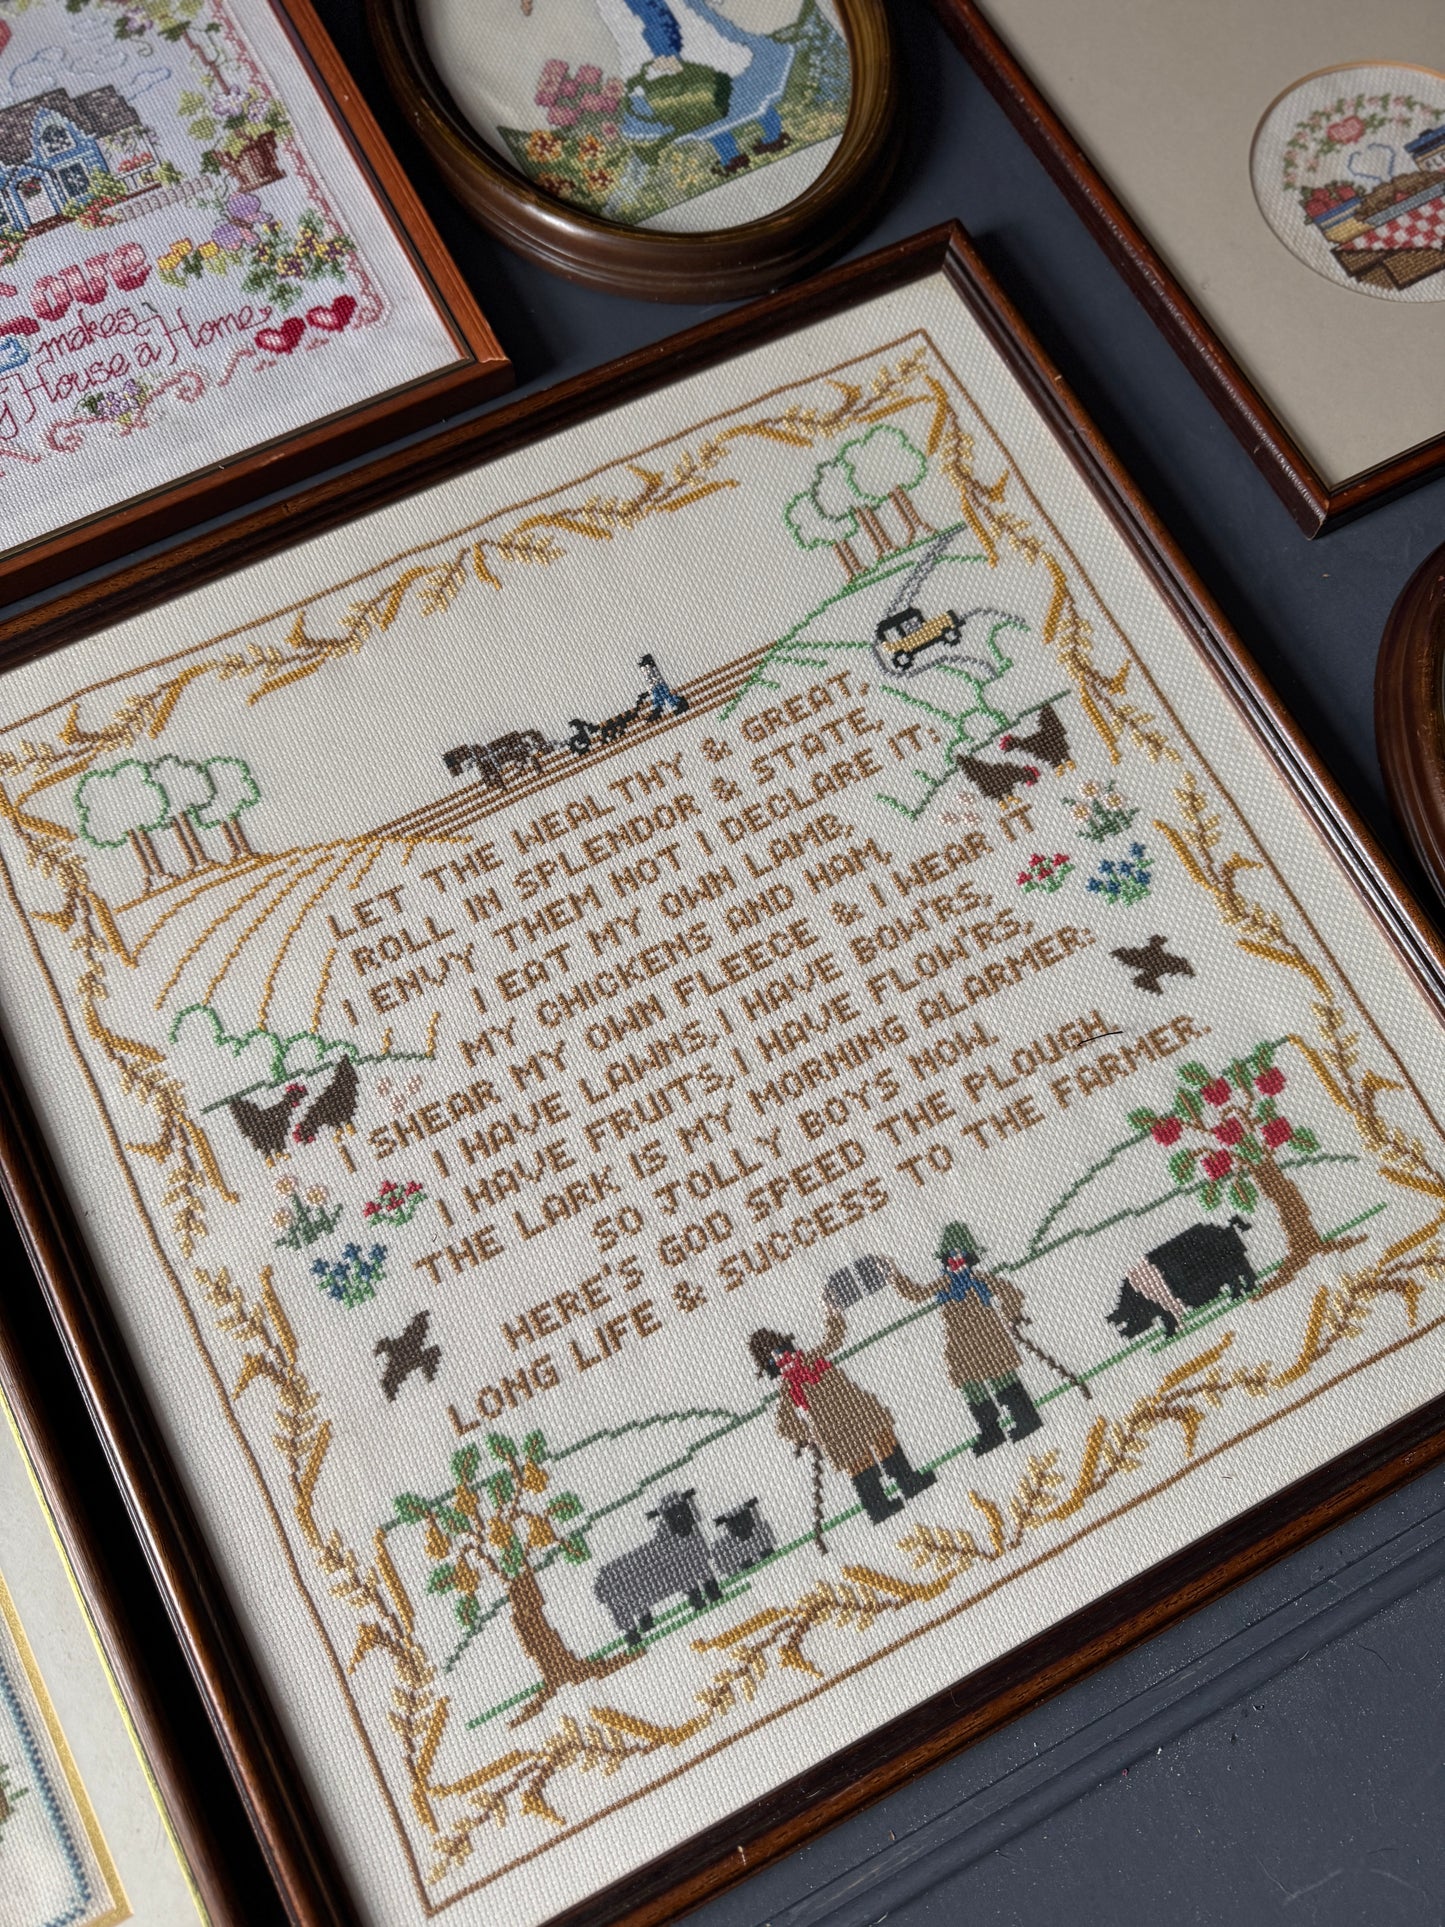 Love
makes
House a Home
LET THE WEALTHY & GREAT,
ROLL IN SPLENDOR & STATE,
I ENVY THEM NOT I DECLARE IT:
I EAT MY OWN LAMB,
MY CHICKENS AND HAM,
I SHEAR MY OWN FLEECE & I WEAR IT
I HAVE LAWNS, I HAVE BOW'RS,
I HAVE FRUITS, I HAVE FLOW'RS,
THE LARK IS MY MORNING ALARMER:
SO JOLLY BOYS NOW.
HERE'S GOD SPEED THE PLOUGH
LONG LIFE & SUCCESS TO THE FARMER.